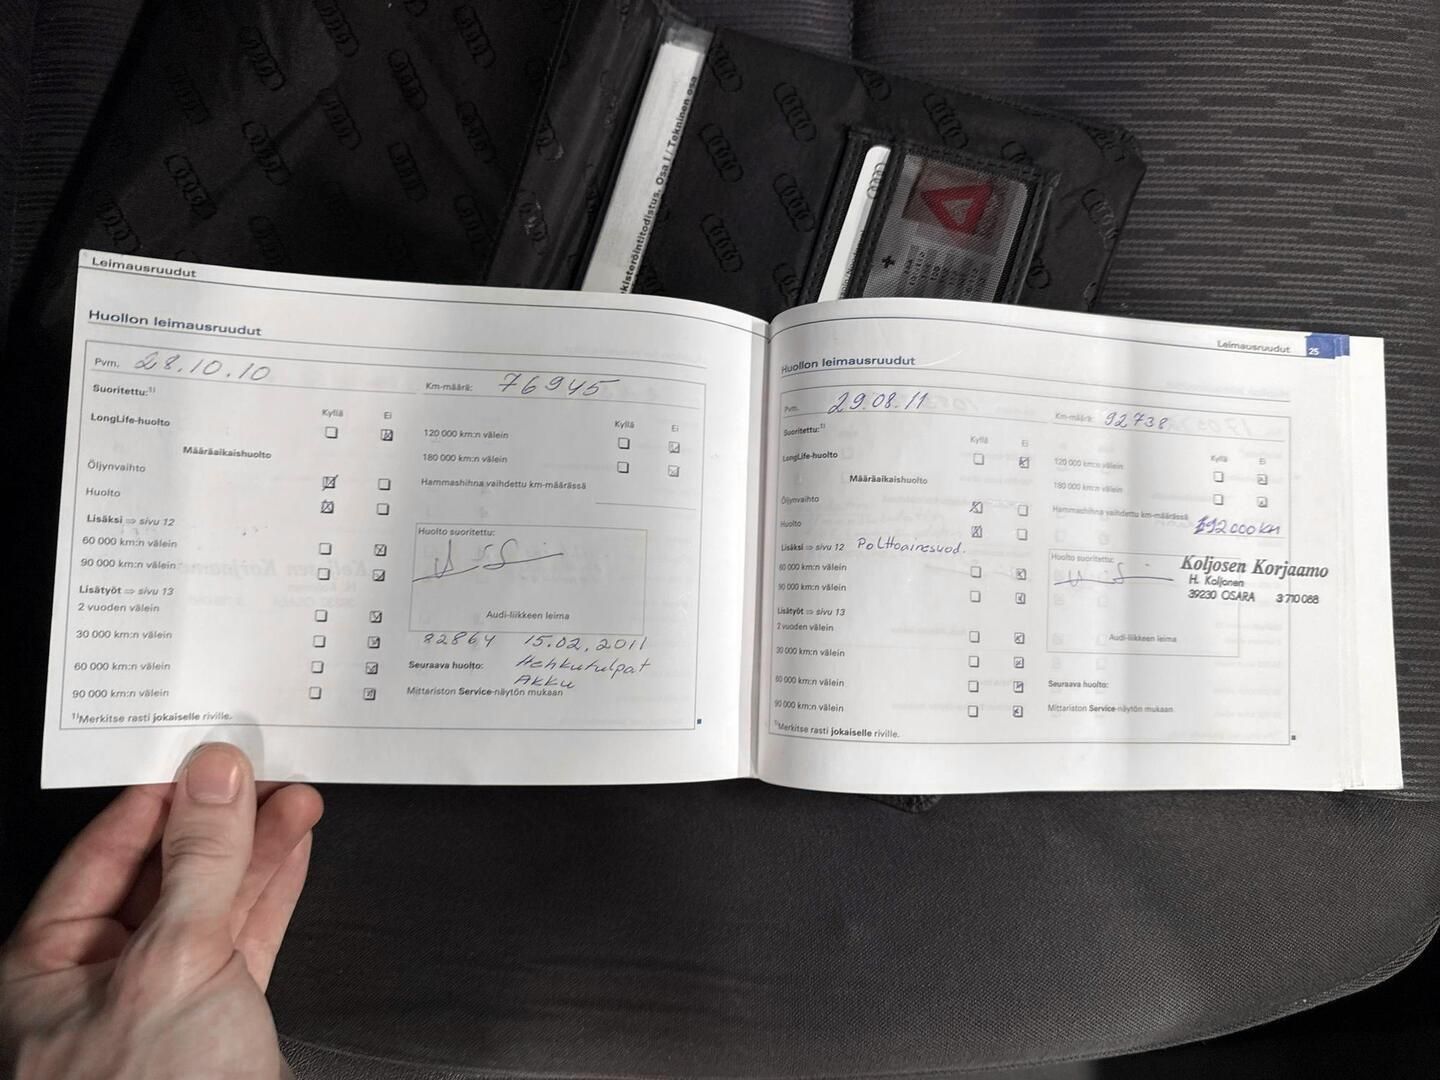 rekisteröintitodistus, Osa I / Tekninen osa
Leimausruudut
Huollon leimausruudut
Pvm. 28.10.10
Km-määrä: 76945
Suoritettu:¹⁾
Kyllä Ei
LongLife-huolto
120 000 km:n välein
Kyllä Ei
180 000 km:n välein
Määräaikaishuolto
Öljynvaihto
Hammashihna vaihdettu km-määrässä
Huolto
Lisäksi ⇒ sivu 12
60 000 km:n välein
90 000 km:n välein
Lisätyöt ⇒ sivu 13
2 vuoden välein
30 000 km:n välein
60 000 km:n välein
90 000 km:n välein
¹⁾Merkitse rasti jokaiselle riville.
Huolto suoritettu:
Audi-liikkeen leima
82864 15.02.2011
Seuraava huolto: Hehkutulpat
Akku
Mittariston Service-näytön mukaan
Leimausruudut 25
Huollon leimausruudut
Pvm. 29.08.11
Km-määrä: 92738
Suoritettu:¹⁾
Kyllä Ei
LongLife-huolto
120 000 km:n välein
Kyllä Ei
180 000 km:n välein
Määräaikaishuolto
Öljynvaihto
Hammashihna vaihdettu km-määrässä
192000km
Huolto
Lisäksi ⇒ sivu 12 Polttoainesuod.
60 000 km:n välein
90 000 km:n välein
Lisätyöt ⇒ sivu 13
2 vuoden välein
30 000 km:n välein
60 000 km:n välein
90 000 km:n välein
¹⁾Merkitse rasti jokaiselle riville.
Huolto suoritettu:
Koljosen Korjaamo
H. Koljonen
39230 OSARA 3710088
Audi-liikkeen leima
Seuraava huolto:
Mittariston Service-näytön mukaan